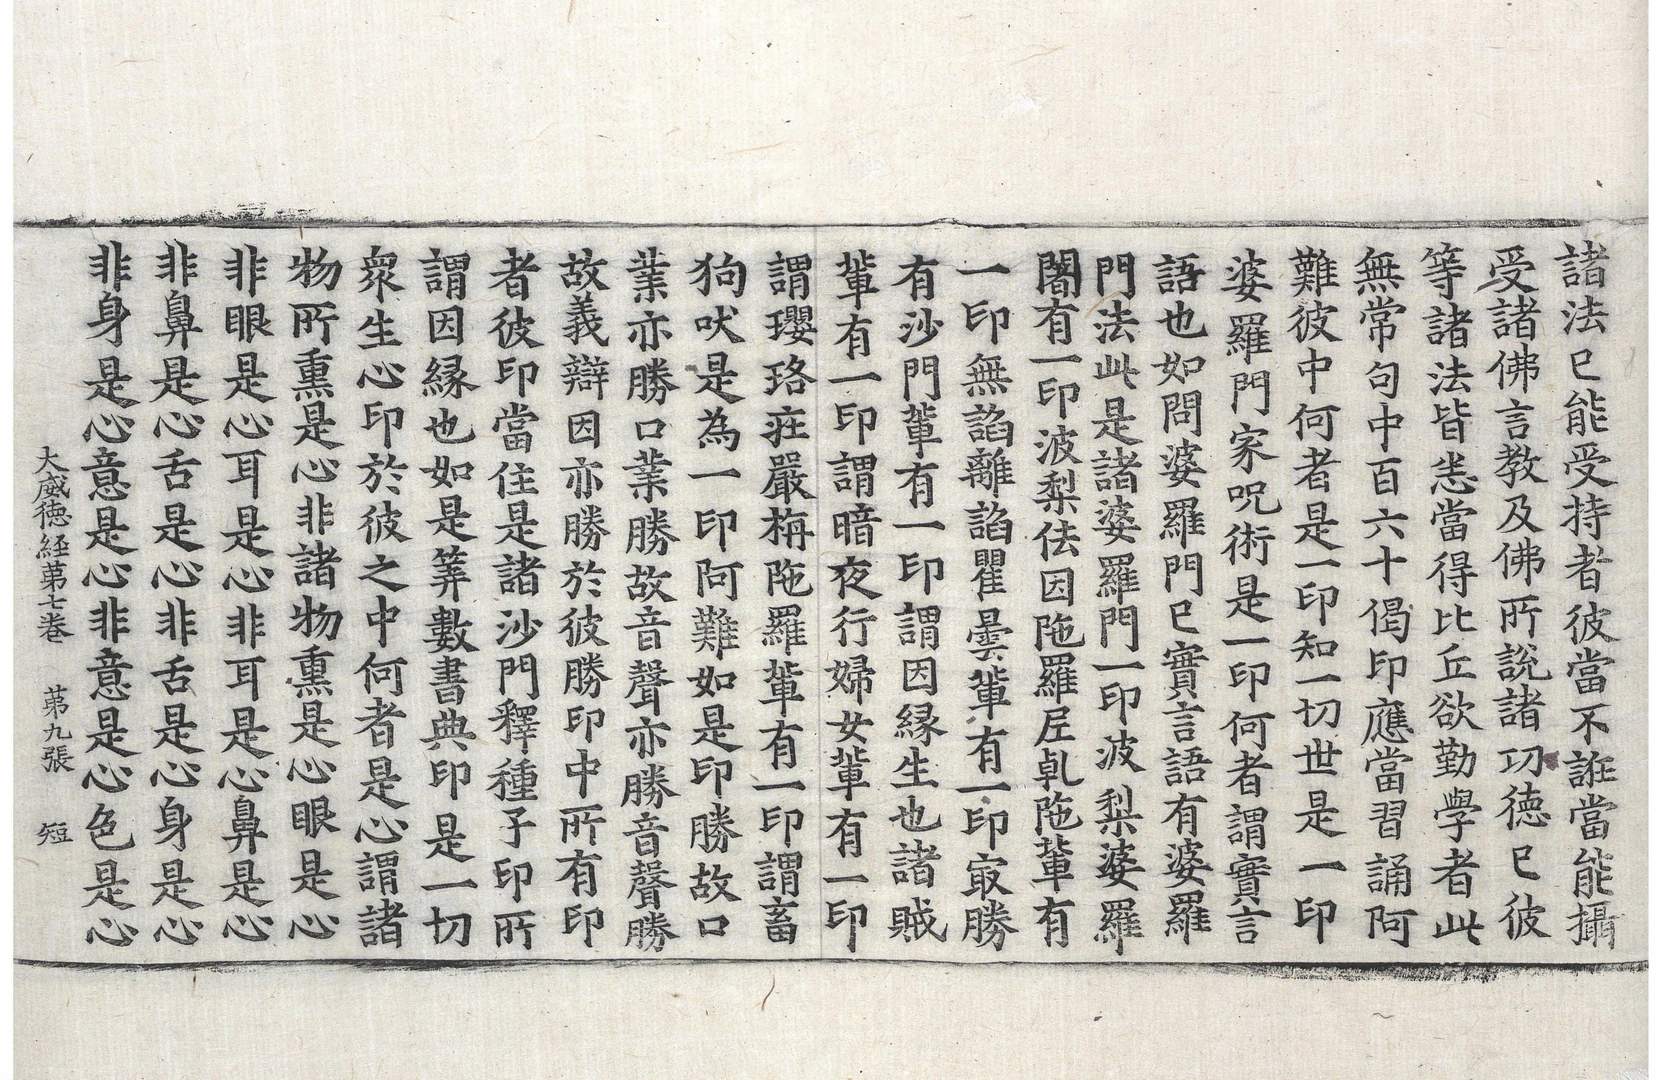 諸法已能受持者彼當不誑當能攝
受諸佛言教及佛所說諸功德已彼
等諸法皆悉當得比丘欲勤學者此
無常句中百六十偈印應當習誦阿
難彼中何者是一印知一切世是一印
婆羅門家呪術是一印何者謂實言
語也如問婆羅門已實言語有婆羅
門法此是諸婆羅門一印波梨婆羅
闍有一印波梨佉因陁羅尼乹陁輩有
一印無諂離諂瞿曇輩有一印㝡勝
有沙門輩有一印謂因緣生也諸賊
輩有一印謂暗夜行婦女輩有一印
謂瓔珞莊嚴栴陁羅輩有一印謂畜
狗吠是為一印阿難如是印勝故口
業亦勝口業勝故音聲亦勝音聲勝
故義辯因亦勝於彼勝印中所有印
者彼印當住是諸沙門釋種子印所
謂因緣也如是筭數書典印是一切
衆生心印於彼之中何者是心謂諸
物所熏是心非諸物熏是心眼是心
非眼是心耳是心非耳是心鼻是心
非鼻是心舌是心非舌是心身是心
非身是心意是心非意是心色是心
大威德經第七卷　第九張　短